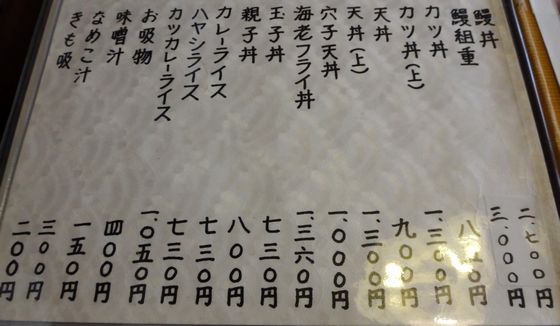 鰻丼 二、七〇〇円
鰻組重 三、〇〇〇円
カツ丼 八五〇円
カツ丼(上) 一、三〇〇円
天丼 九〇〇円
天丼(上) 一、三〇〇円
穴子天丼 一、〇〇〇円
海老フライ丼 一、三六〇円
玉子丼 七三〇円
親子丼 八〇〇円
カレーライス 七三〇円
ハヤシライス 七三〇円
カツカレーライス 一、〇五〇円
お吸物 四〇〇円
味噌汁 一五〇円
なめこ汁 三〇〇円
きも吸 二〇〇円